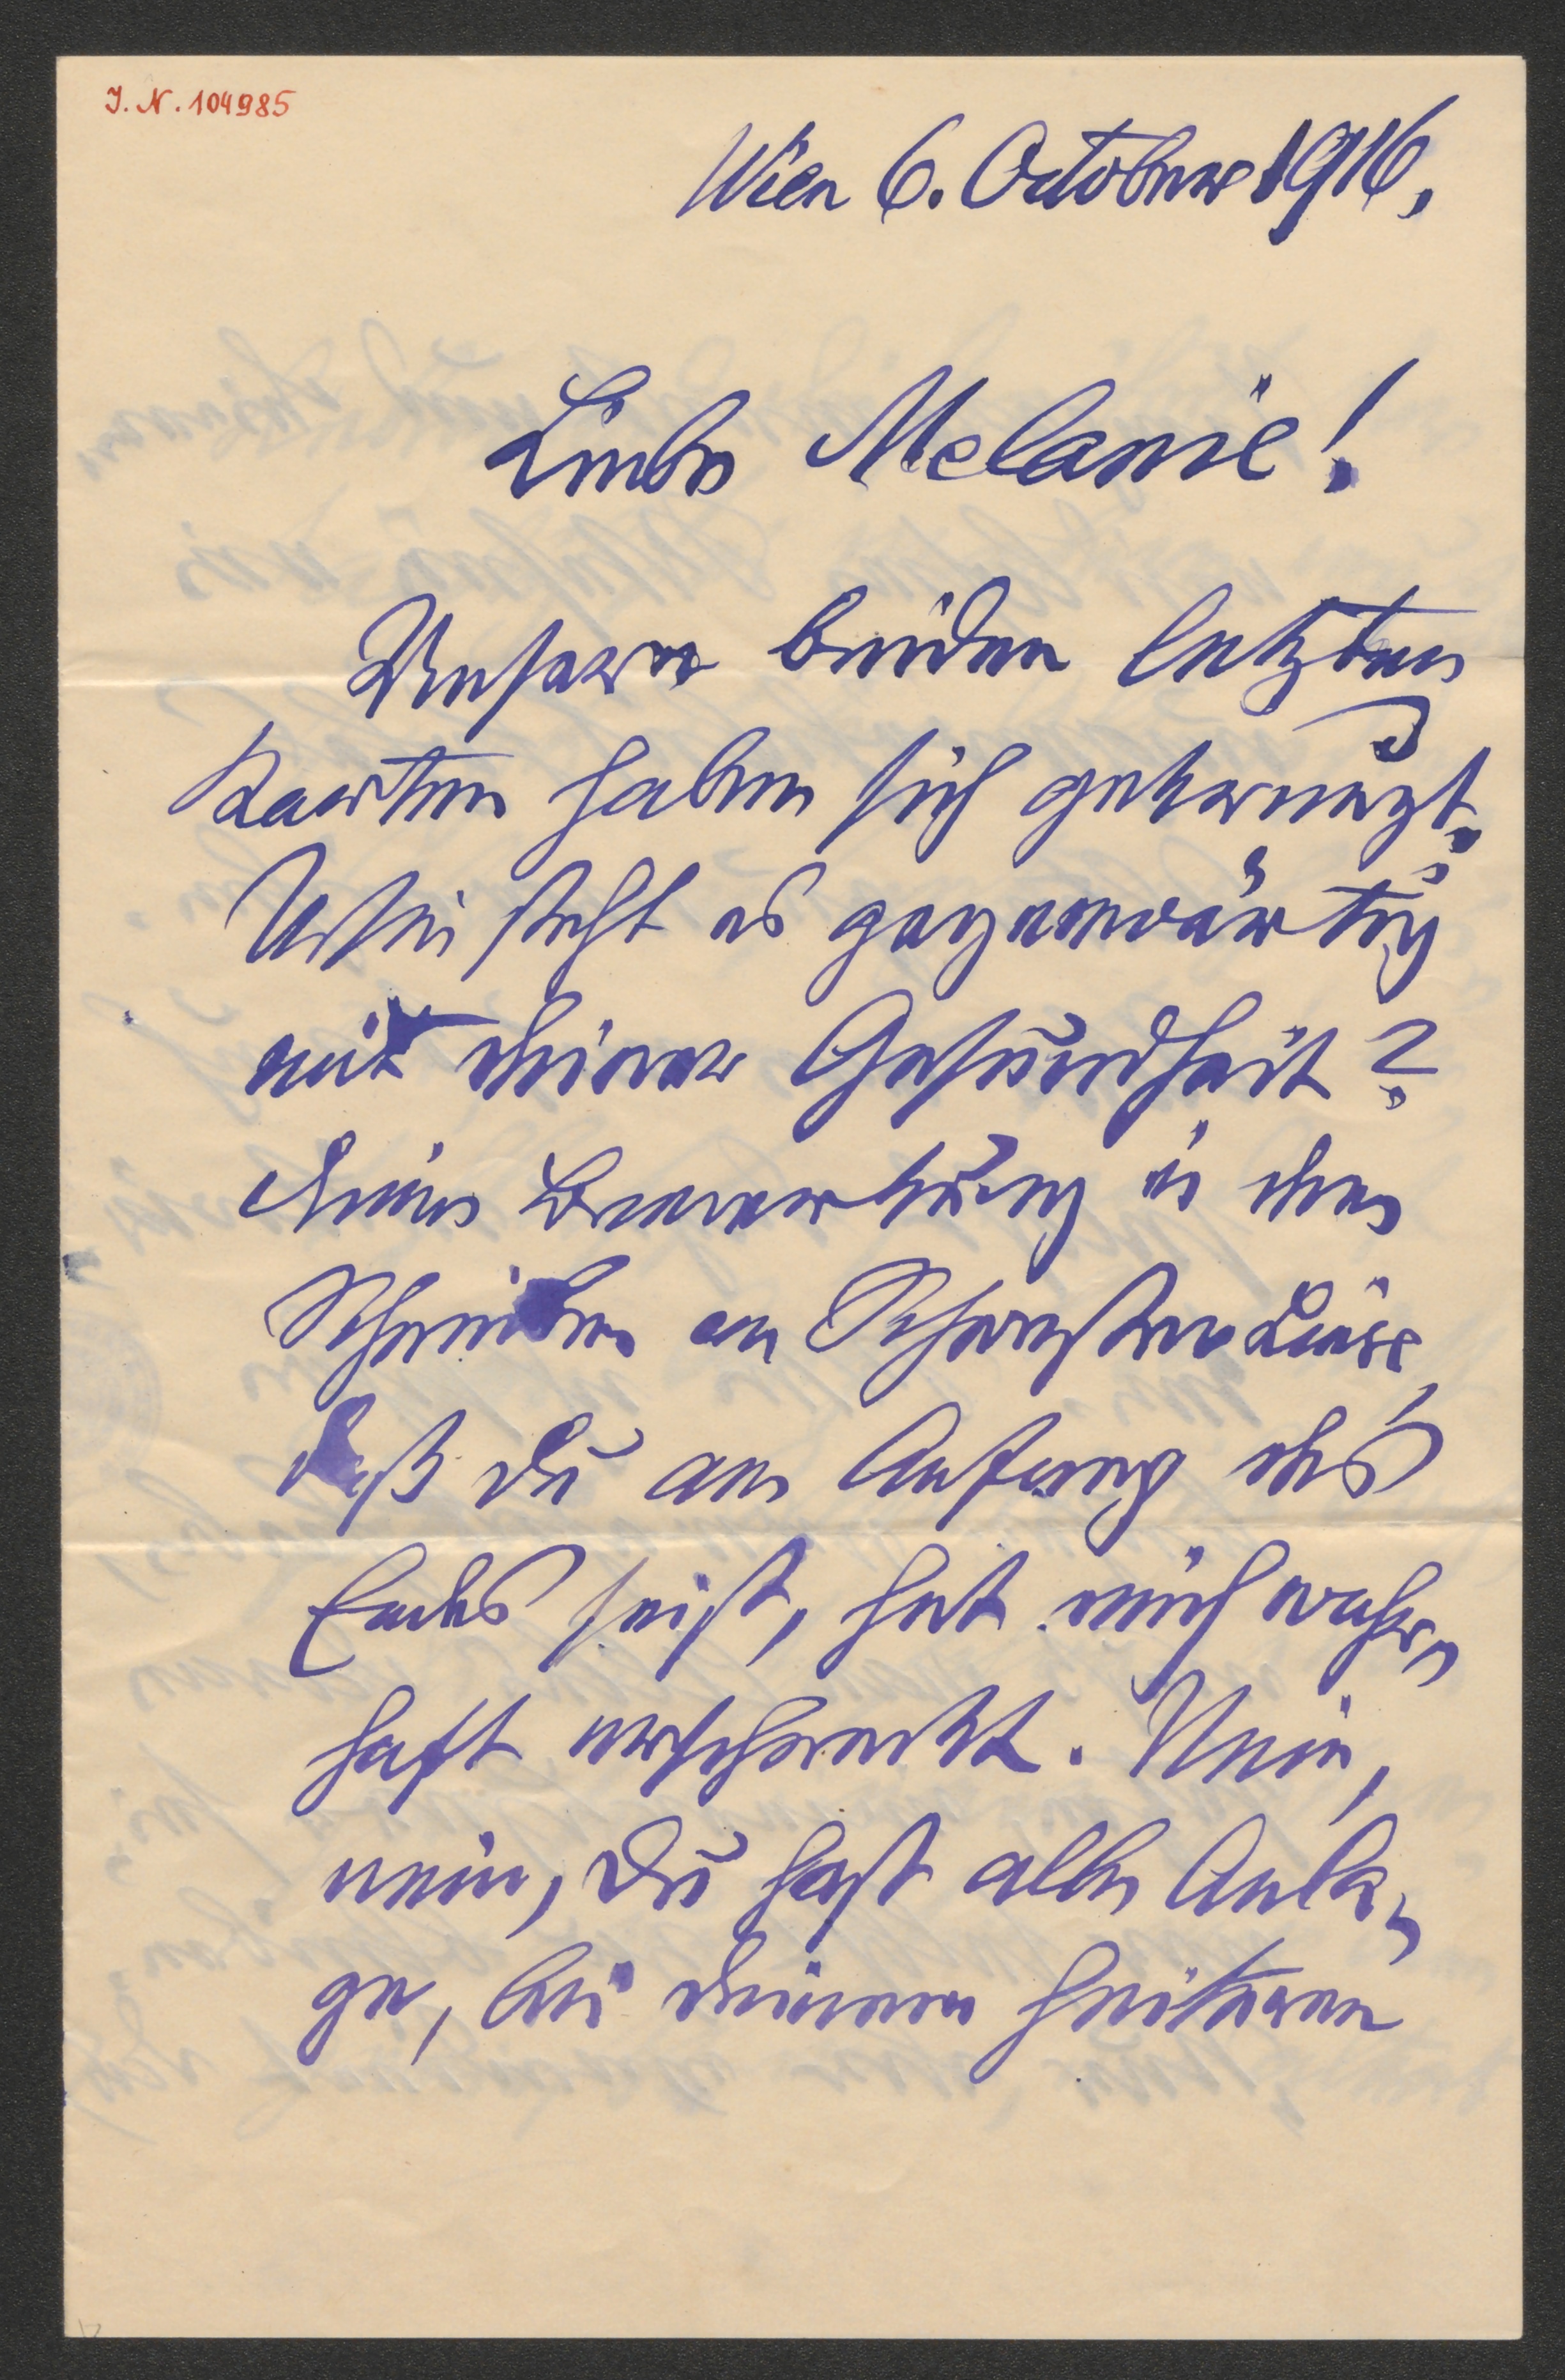 J. N. 104985
Wien 6. October 1916,
Liebe Melanie!
Unsere beiden letzten
Karten haben sich gekreuzt.
Wie steht es gegenwärtig
mit deiner Gesundheit?
Deine Bemerkung in dem
Schreiben an Schwester Luise,
daß du am Anfang des
Endes seist, hat mich wahr-
haft erschreckt. Nein,
nein, du hast alle Anla-
ge, bei deinem heiteren